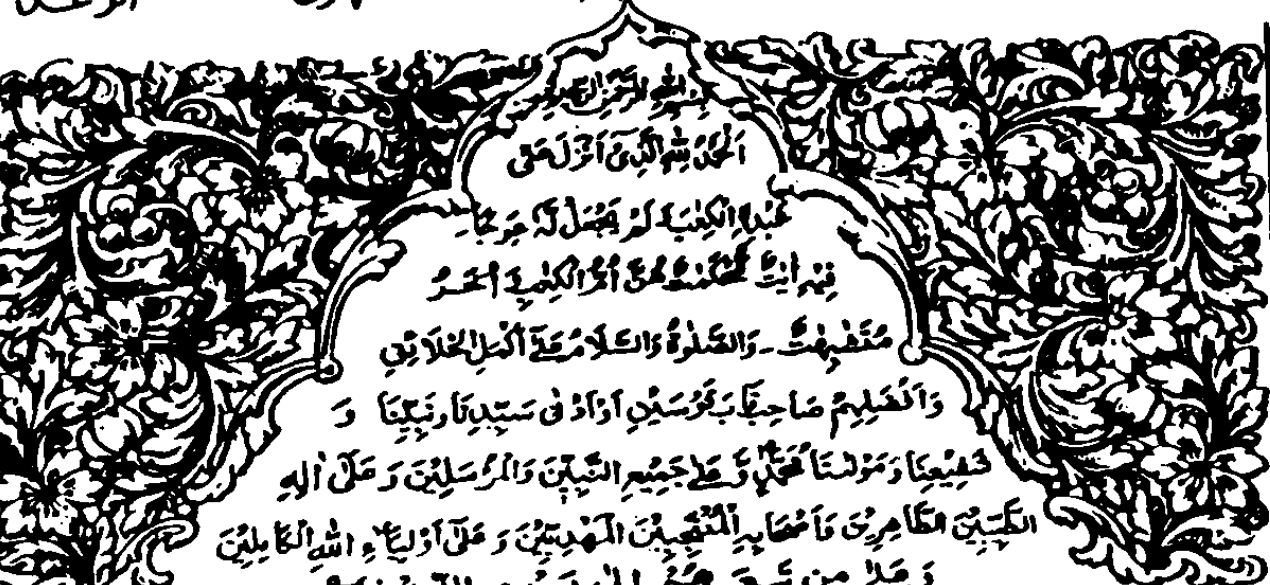 بسم الله الرحمن الرحيم
اَلْحَمْدُ لِلّٰهِ الَّذِىْ اَنْزَلَ عَلٰى
عَبْدِهِ الْكِتٰبَ لَمْ يَجْعَلْ لَّهٗ عِوَجًا
فِيْهِ اٰيٰتٌ مُّحْكَمٰتٌ هُنَّ اُمُّ الْكِتٰبِ وَ اُخَرُ
مُتَشٰبِهٰتٌ ـ وَالصَّلٰوةُ وَالسَّلَامُ عَلٰٓى اَكْمَلِ الْخَلَائِقِ
وَاَفْضَلِهِمْ صَاحِبِ قَابَ قَوْسَيْنِ اَوْ اَدْنٰى سَيِّدِنَا وَنَبِيِّنَا وَ
شَفِيْعِنَا وَمَوْلٰنَا مُحَمَّدٍ وَّ عَلٰى جَمِيْعِ النَّبِيِّيْنَ وَالْمُرْسَلِيْنَ وَ عَلٰٓى اٰلِهِ
الطَّيِّبِيْنَ الطَّاهِرِيْنَ وَاَصْحَابِهِ الْمَهْدِيِّيْنَ وَ عَلٰٓى اَوْلِيَآءِ اللّٰهِ الْكَامِلِيْنَ